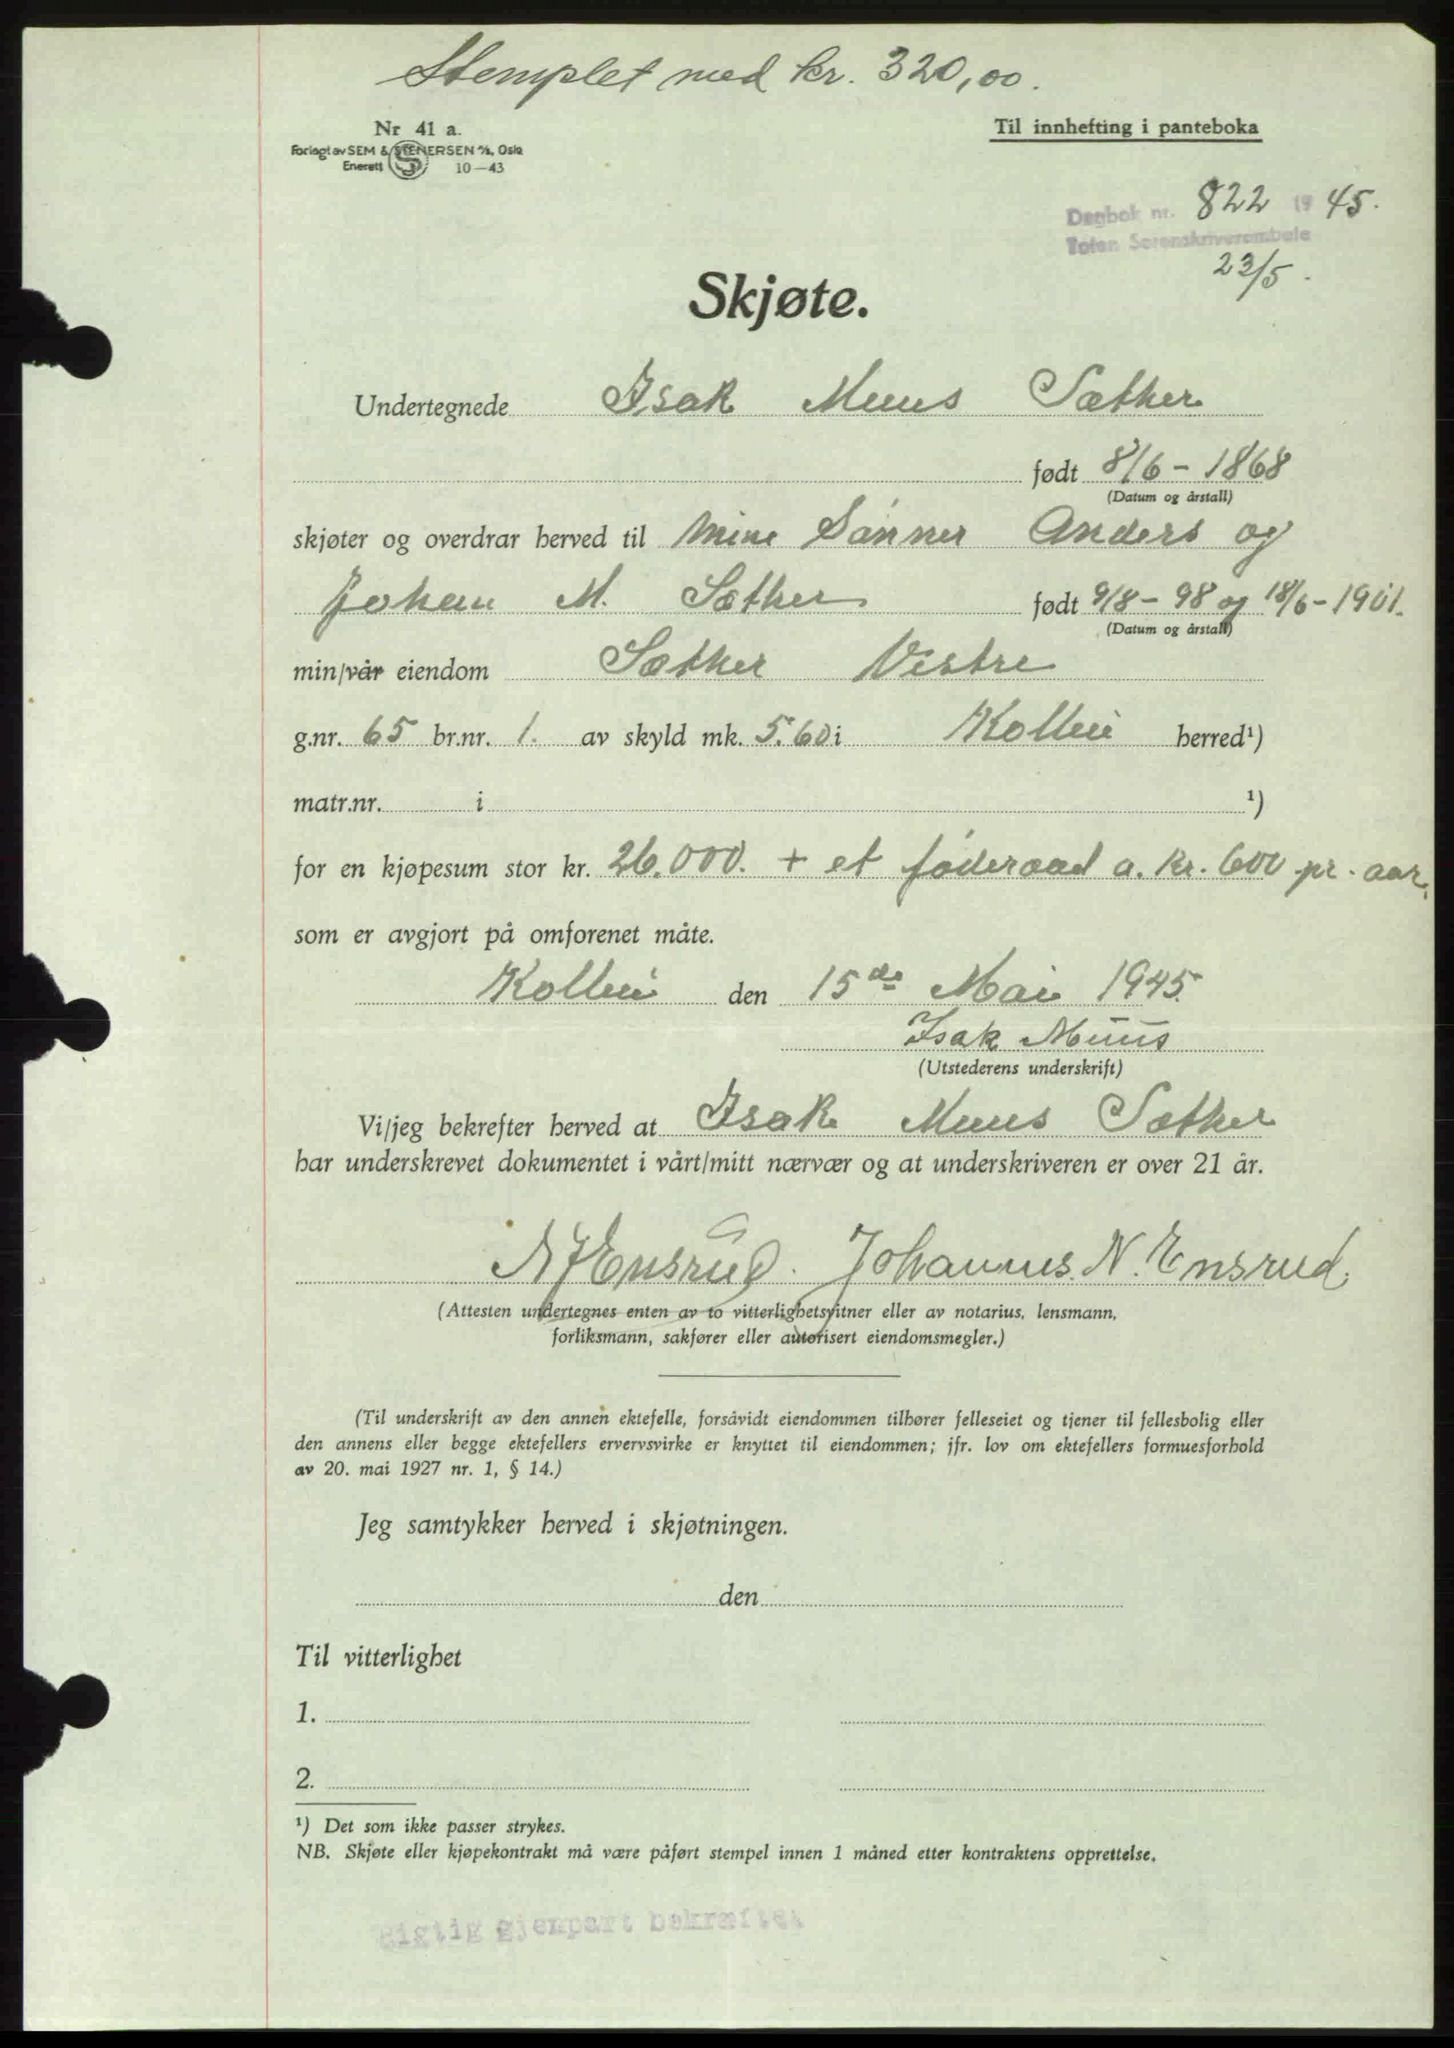 Stemplet med kr. 320,00.
Nr 41 a.
Til innhefting i panteboka
Forlagt av SEM & STENERSEN A/S, Oslo
Enerett 10—43
Dagbok nr. 822 19 45.
Toten Sorenskriverembete
23/5.
Skjøte.
Undertegnede Isak Muus Sæther
født 8/6 - 1868
(Datum og årstall)
skjøter og overdrar herved til mine Sønner Anders og
Johan M. Sæther født 9/8 - 98 og 18/6 - 1901.
(Datum og årstall)
min/vår eiendom Sæther Vestre
g.nr. 65 br.nr. 1. av skyld mk. 5.60 i Kolbu herred¹)
matr.nr. i ¹)
for en kjøpesum stor kr. 26.000. + et føderaad a. kr. 600 pr. aar.
som er avgjort på omforenet måte.
Kolbu den 15de Mai 1945.
Isak Muus
(Utstederens underskrift)
Vi/jeg bekrefter herved at Isak Muus Sæther
har underskrevet dokumentet i vårt/mitt nærvær og at underskriveren er over 21 år.
Ensrud. Johannes N. Ensrud.
(Attesten undertegnes enten av to vitterlighetsvitner eller av notarius, lensmann,
forliksmann, sakfører eller autorisert eiendomsmegler.)
(Til underskrift av den annen ektefelle, forsåvidt eiendommen tilhører felleseiet og tjener til fellesbolig eller
den annens eller begge ektefellers ervervsvirke er knyttet til eiendommen; jfr. lov om ektefellers formuesforhold
av 20. mai 1927 nr. 1, § 14.)
Jeg samtykker herved i skjøtningen.
den
Til vitterlighet
1.
2.
¹) Det som ikke passer strykes.
NB. Skjøte eller kjøpekontrakt må være påført stempel innen 1 måned etter kontraktens opprettelse.
Rigtig gjenpart bekræftet